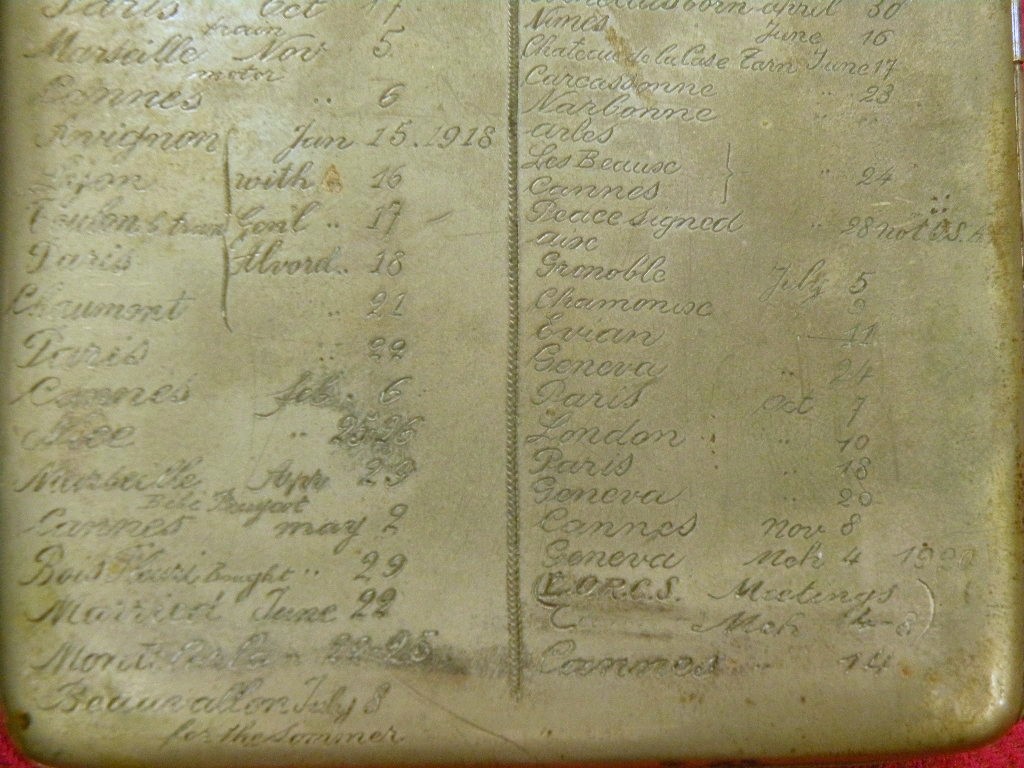 Paris Oct 17
train
Marseille Nov 5.
motor
Cannes " 6
Avignon Jan 15. 1918
Lyon with 16
Toulon & train Genl " 17
Paris Alvord " 18
Chaumont " 21
Paris " 22
Cannes feb. 6
Nice " 25-26
Marseille Apr 29
Bébé Peugeot
Cannes may 2
bought " 29
Married June 22
Monte Carlo 22-25
Beauvallon July 8
for the sommer
born april 30
Nimes June 16
Chateau de la Case Tarn June 17
Carcassonne " 23
Narbonne " "
arles
Les Beaux " 24
Cannes
Peace signed " 28 not U.S.A
aix
Gronoble July 5
Chamonix 9
Evian 11
Geneva 24
Paris oct 7
London " 10
Paris " 18
Geneva " 20
Cannes Nov 8
Geneva Mch 4 1920
L.O.R.C.S. Meetings
Mch 4-8
Cannes " 14